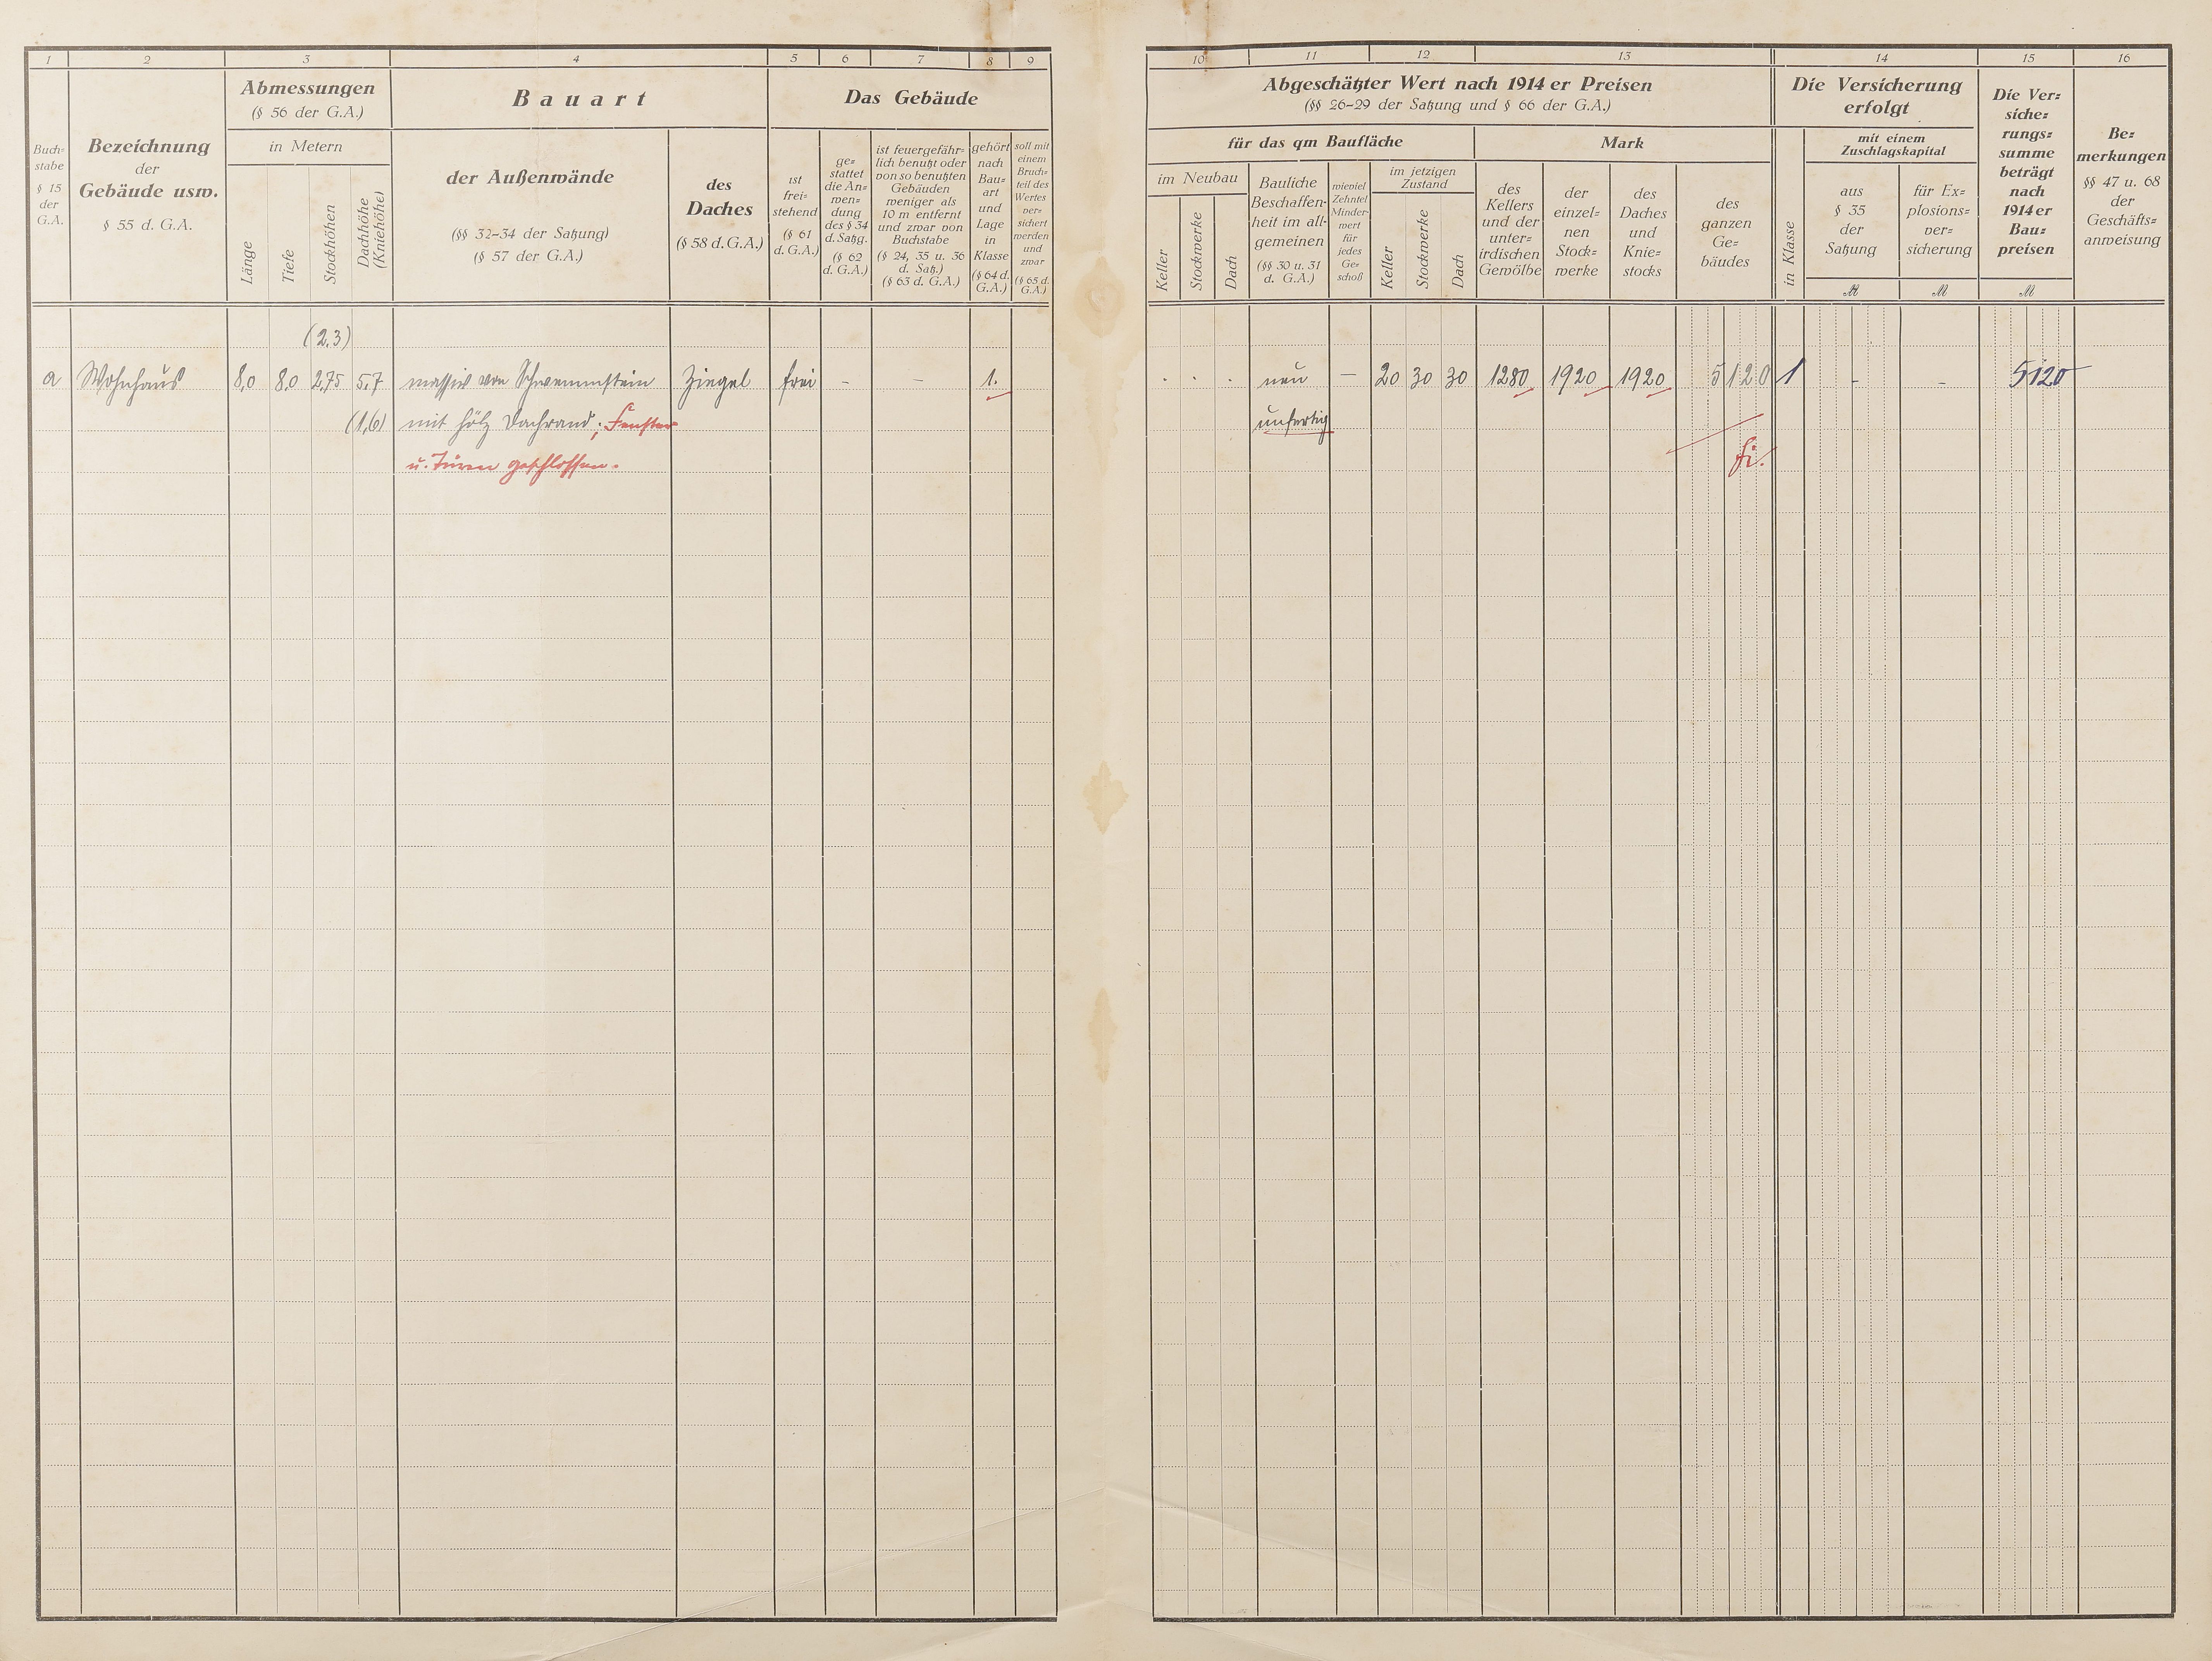 1 2 3 4 5 6 7 8 9
Buch=
stabe
§ 15
der
G.A.
Bezeichnung
der
Gebäude usw.
§ 55 d. G.A.
Abmessungen
(§ 56 der G.A.)
in Metern
Länge
Tiefe
Stockhöhen
Dachhöhe
(Kniehöhe)
Bauart
der Außenwände
(§§ 32–34 der Satzung)
(§ 57 der G.A.)
des
Daches
(§ 58 d. G.A.)
Das Gebäude
ist
frei=
stehend
(§ 61
d. G.A.)
ge=
stattet
die An=
wen=
dung
des § 34
d. Satzg.
(§ 62
d. G.A.)
ist feuergefähr=
lich benutzt oder
von so benutzten
Gebäuden
weniger als
10 m entfernt
und zwar von
Buchstabe
(§ 24, 35 u. 36
d. Satz.)
(§ 63 d. G.A.)
gehört
nach
Bau=
art
und
Lage
in
Klasse
(§ 64 d.
G.A.)
soll mit
einem
Bruch=
teil des
Wertes
ver=
sichert
werden
und
zwar
(§ 65 d.
G.A.)
(2.3)
a Wohnhaus 8,0 8,0 2,75 5,7 massiv von Schwemmstein Ziegel frei - - 1.
(1,6) mit hölz Dachrand; Fenster
u. Türen geschlossen.
10 11 12 13 14 15 16
Abgeschätzter Wert nach 1914 er Preisen
(§§ 26–29 der Satzung und § 66 der G.A.)
für das qm Baufläche
Mark
im Neubau
Keller
Stockwerke
Dach
Bauliche
Beschaffen=
heit im all=
gemeinen
(§§ 30 u. 31
d. G.A.)
wieviel
Zehntel
Minder=
wert
für
jedes
Ge=
schoß
im jetzigen
Zustand
Keller
Stockwerke
Dach
des
Kellers
und der
unter=
irdischen
Gewölbe
der
einzel=
nen
Stock=
werke
des
Daches
und
Knie=
stocks
des
ganzen
Ge=
bäudes
Die Versicherung
erfolgt
in Klasse
mit einem
Zuschlagskapital
aus
§ 35
der
Satzung
M
für Ex=
plosions=
ver=
sicherung
M
Die Ver=
siche=
rungs=
summe
beträgt
nach
1914 er
Bau=
preisen
M
Be=
merkungen
§§ 47 u. 68
der
Geschäfts=
anweisung
. . . neu - 20 30 30 1280 1920 1920 5120 1 - - 5120
unfertig